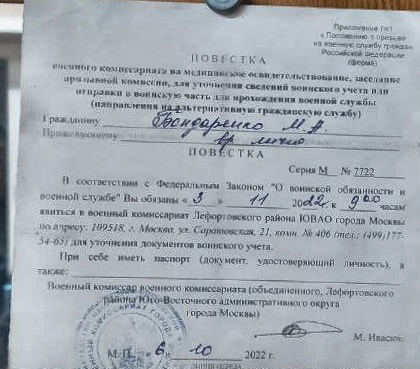 Приложение №1
к Положению о призыве
на военную службу граждан
Российской Федерации
(форма)
ПОВЕСТКА
военного комиссариата на медицинское освидетельствование, заседание
призывной комиссии, для уточнения сведений воинского учета или
отправки в воинскую часть для прохождения военной службы
(направления на альтернативную гражданскую службу)
Гражданину Бондаренко М. А.
Проживающему вр. лично
ПОВЕСТКА
Серия М № 7722
В соответствии с Федеральным Законом "О воинской обязанности и
военной службе" Вы обязаны « 3 » 11 2022 г. к 9 00 часам
явиться в военный комиссариат Лефортовского района ЮВАО города Москвы
по адресу: 109518, г. Москва, ул. Саратовская, 21, комн. № 406 (тел.: (499)177-
54-65) для уточнения документов воинского учета.
При себе иметь паспорт (документ, удостоверяющий личность), а
также:
Военный комиссар военного комиссариата (объединенного, Лефортовского
района Юго-Восточного административного округа
города Москвы)
М. Ивасюк
М. П. « 6 » 10 2022 г.